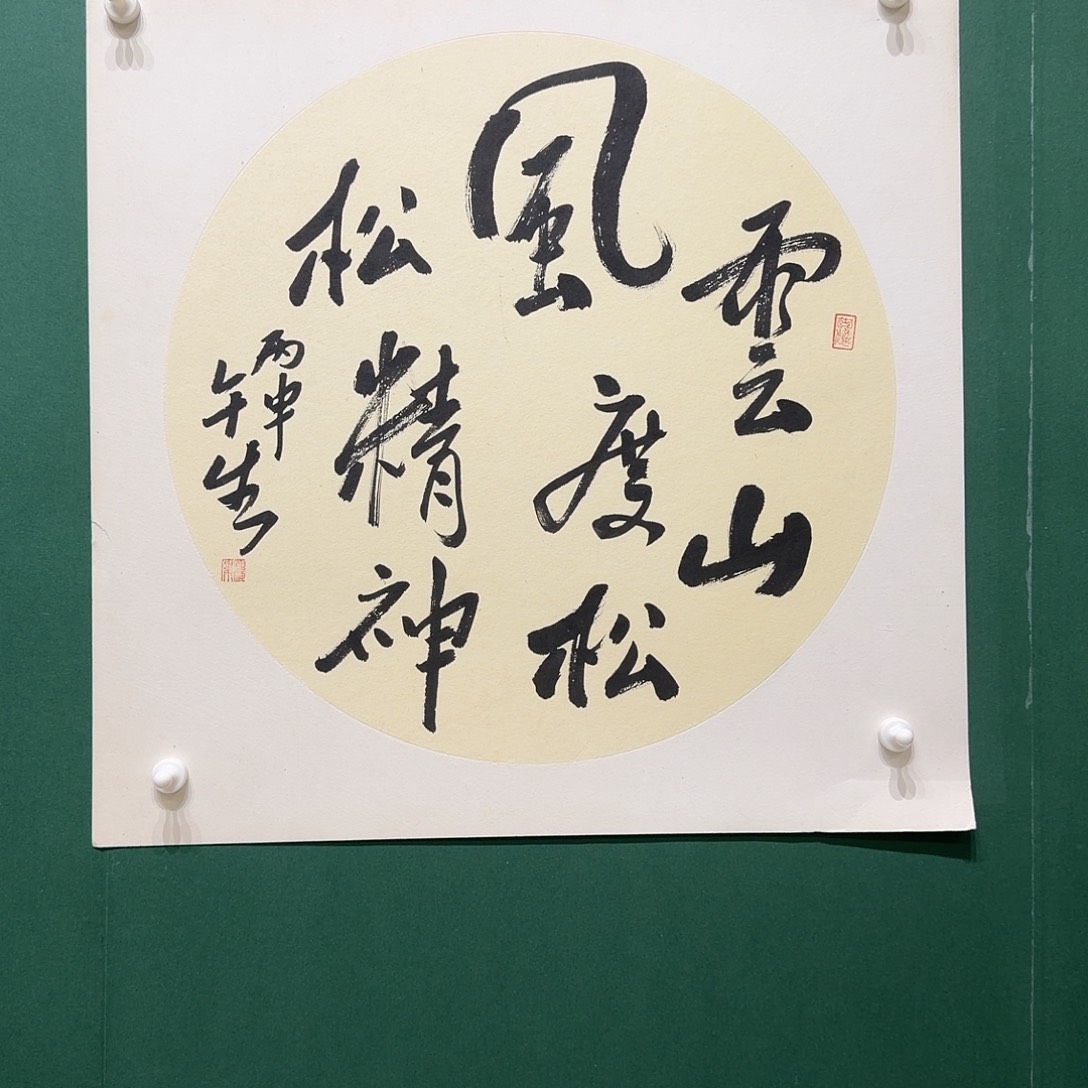 雲山
風度松
松精神
丙申
午生